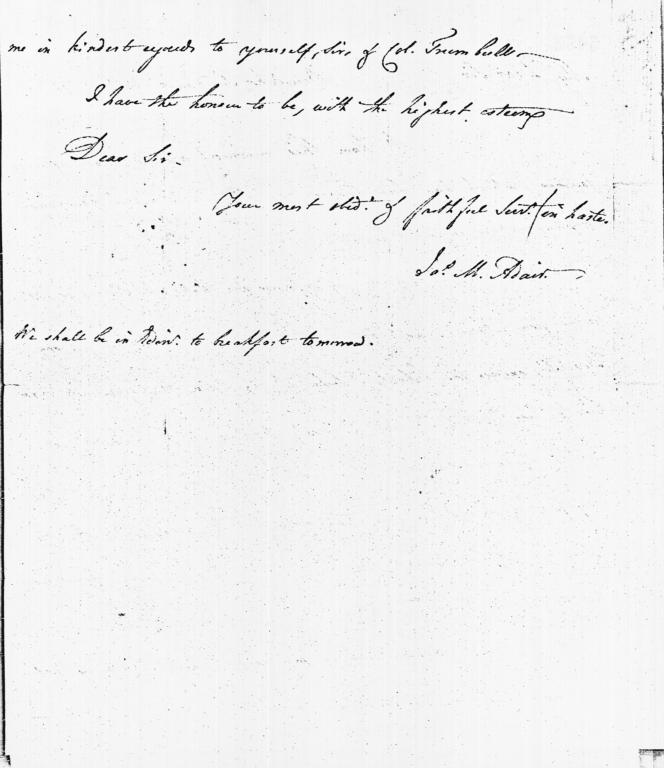 me in kindest regards to yourself, Sir, & Col. Trumbull.
I have the honour to be, with the highest esteem,
Dear Sir.
Your most obed.t & faithful Serv.t (in haste.
Ja.s M. Adair.
We shall be in Edin.r to breakfast tomorrow.